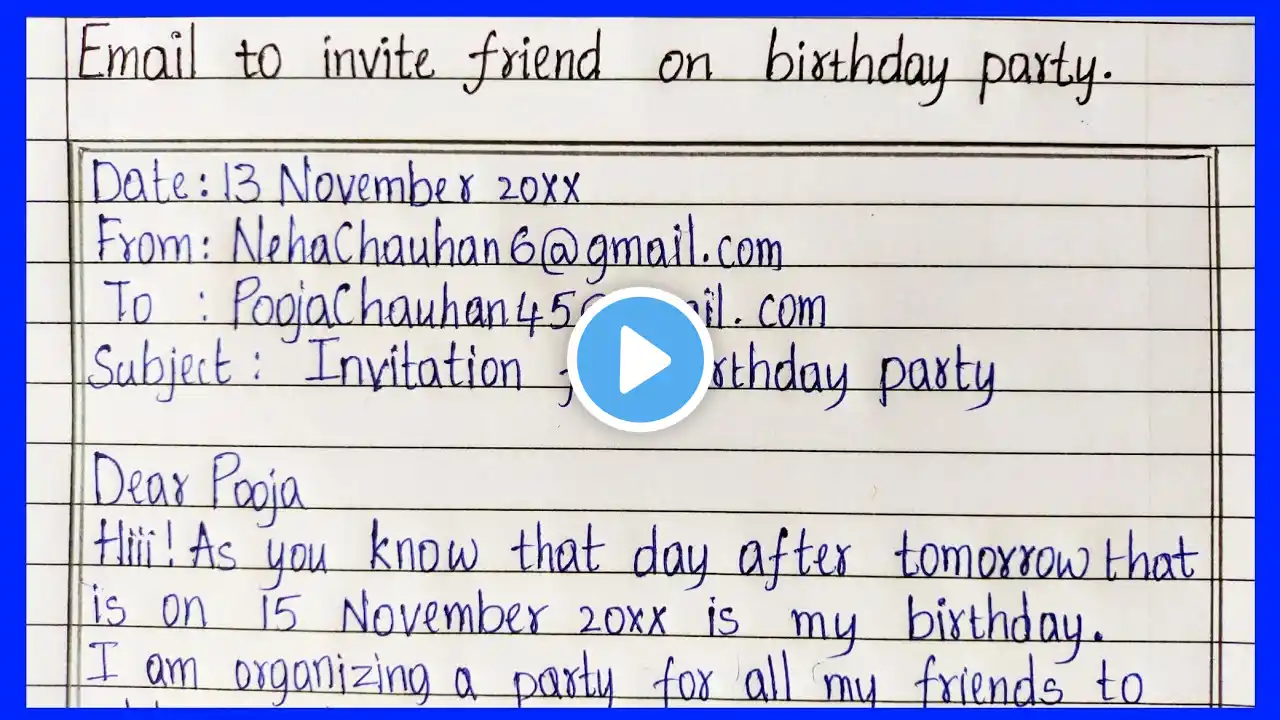 Email to invite friend on birthday party.
Date: 13 November 20xx
From: NehaChauhan6@gmail.com
To : PoojaChauhan45 .com
Subject: Invitation party
Dear Pooja
Hiii! As you know that day after tomorrow that
is on 15 November 20xx is my birthday.
I am organizing a party for all my friends to